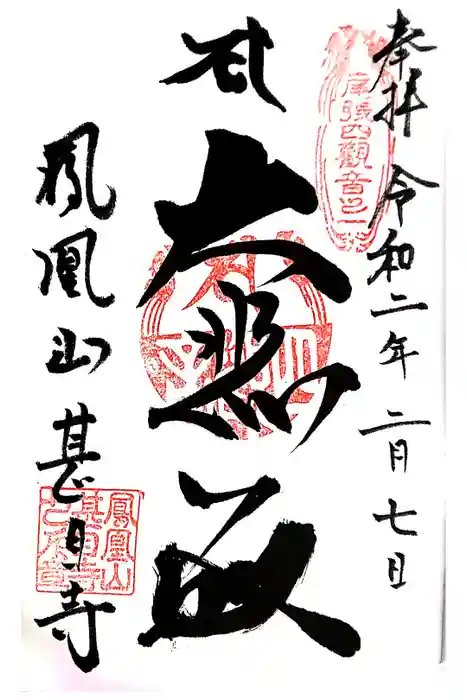 奉拝 令和二年 二月七日
尾張四観音之一
大悲殿
鳳凰山 甚目寺
鳳凰山
甚目寺